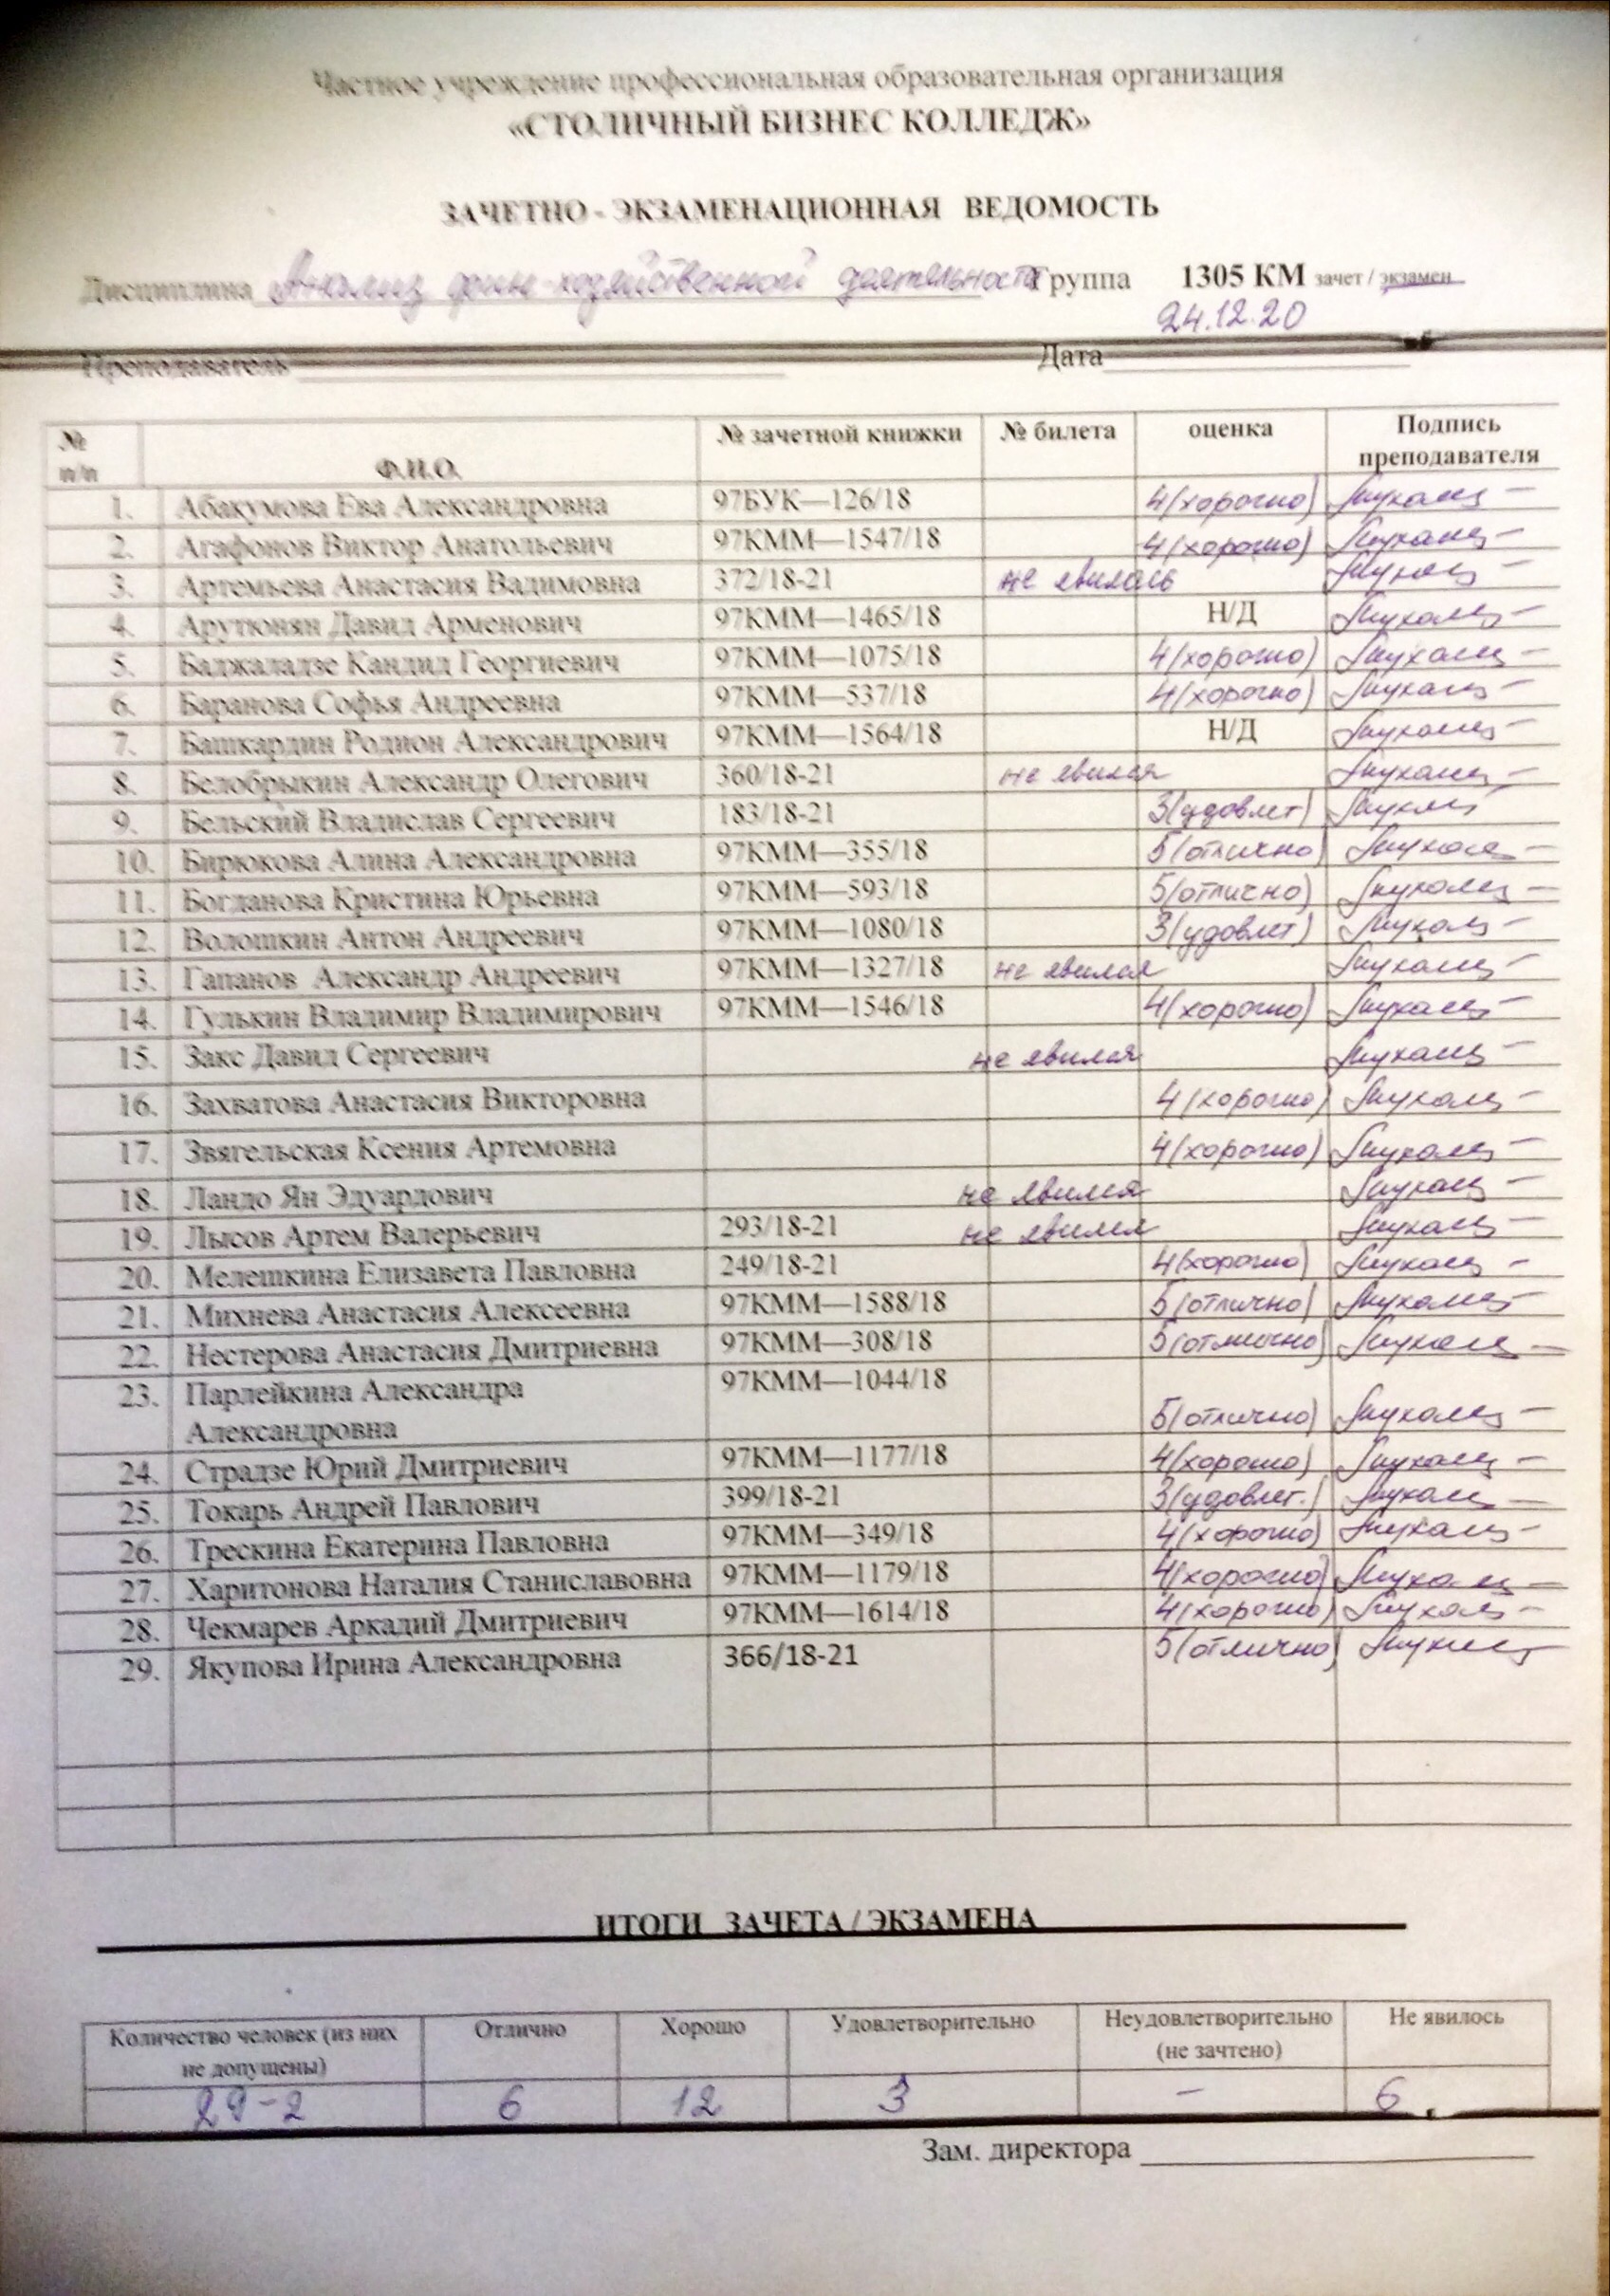 Частное учреждение профессиональная образовательная организация
«СТОЛИЧНЫЙ БИЗНЕС КОЛЛЕДЖ»
ЗАЧЕТНО - ЭКЗАМЕНАЦИОННАЯ ВЕДОМОСТЬ
Дисциплина Анализ фин-хозяйственной деятельности Группа 1305 КМ зачет / экзамен
24.12.20
Преподаватель Дата
№ п/п Ф.И.О. № зачетной книжки № билета оценка Подпись преподавателя
1. Абакумова Ева Александровна 97БУК—126/18 4(хорошо)
2. Агафонов Виктор Анатольевич 97КММ—1547/18 4(хорошо)
3. Артемьева Анастасия Вадимовна 372/18-21 не явилась
4. Арутюнян Давид Арменович 97КММ—1465/18 Н/Д
5. Баджаладзе Кандид Георгиевич 97КММ—1075/18 4(хорошо)
6. Баранова Софья Андреевна 97КММ—537/18 4(хорошо)
7. Башкардин Родион Александрович 97КММ—1564/18 Н/Д
8. Белобрыкин Александр Олегович 360/18-21 не явился
9. Бельский Владислав Сергеевич 183/18-21 3(удовлет)
10. Бирюкова Алина Александровна 97КММ—355/18 5(отлично)
11. Богданова Кристина Юрьевна 97КММ—593/18 5(отлично)
12. Волошкин Антон Андреевич 97КММ—1080/18 3(удовлет)
13. Гапанов Александр Андреевич 97КММ—1327/18 не явился
14. Гулькин Владимир Владимирович 97КММ—1546/18 4(хорошо)
15. Закс Давид Сергеевич не явился
16. Захватова Анастасия Викторовна 4(хорошо)
17. Звягельская Ксения Артемовна 4(хорошо)
18. Ландо Ян Эдуардович не явился
19. Лысов Артем Валерьевич 293/18-21 не явился
20. Мелешкина Елизавета Павловна 249/18-21 4(хорошо)
21. Михнева Анастасия Алексеевна 97КММ—1588/18 5(отлично)
22. Нестерова Анастасия Дмитриевна 97КММ—308/18 5(отлично)
23. Парлейкина Александра 97КММ—1044/18
Александровна 5(отлично)
24. Страдзе Юрий Дмитриевич 97КММ—1177/18 4(хорошо)
25. Токарь Андрей Павлович 399/18-21 3(удовлет.)
26. Трескина Екатерина Павловна 97КММ—349/18 4(хорошо)
27. Харитонова Наталия Станиславовна 97КММ—1179/18 4(хорошо)
28. Чекмарев Аркадий Дмитриевич 97КММ—1614/18 4(хорошо)
29. Якупова Ирина Александровна 366/18-21 5(отлично)
ИТОГИ ЗАЧЕТА / ЭКЗАМЕНА
Количество человек (из них Отлично Хорошо Удовлетворительно Неудовлетворительно Не явилось
не допущены) (не зачтено)
29-2 6 12 3 - 6
Зам. директора